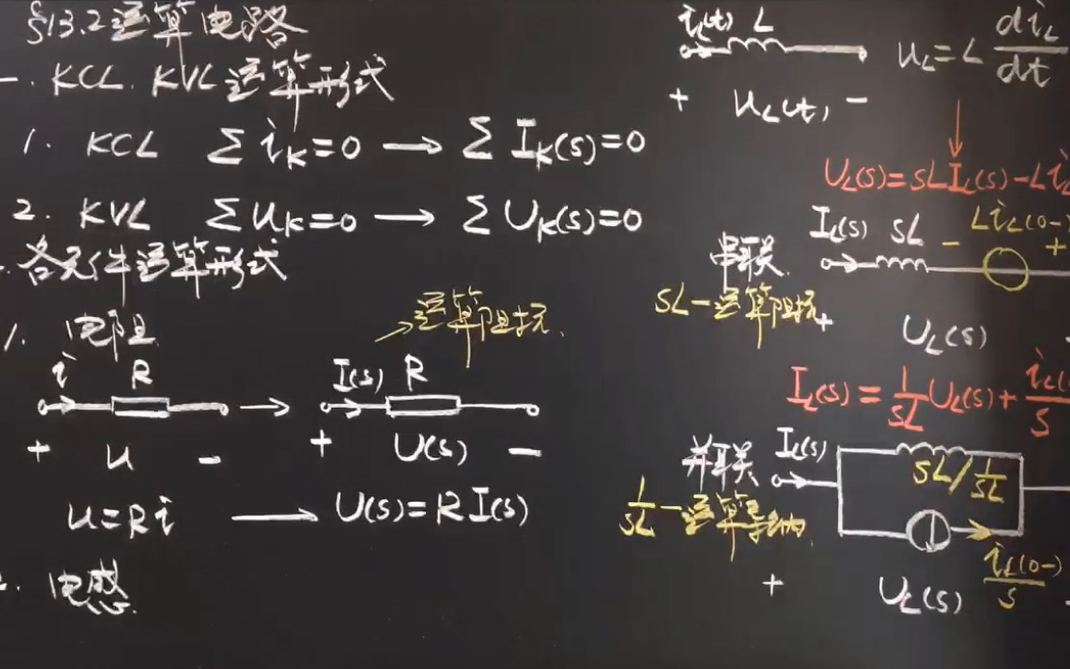 §13.2 运算电路
一. KCL. KVL 运算形式
1. KCL ∑iₖ=0 → ∑Iₖ(s)=0
2. KVL ∑uₖ=0 → ∑Uₖ(s)=0
. 各元件运算形式
1. 电阻
运算阻抗.
i R → I(s) R
+ u − + U(s) −
u=Ri → U(s)=RI(s)
2. 电感.
i_L(t) L
u_L=L di_L/dt
+ u_L(t) −
U_L(s)=sLI_L(s)−Li_L
串联关.
I_L(s) sL − Li_L(0−) +
sL−运算阻抗
+ U_L(s)
I_L(s)=1/sL U_L(s)+ i_L(0/s
并联关
I_L(s)
sL/ 1/sL
1/sL −运算导纳.
i_L(0−)/s
+ U_L(s)